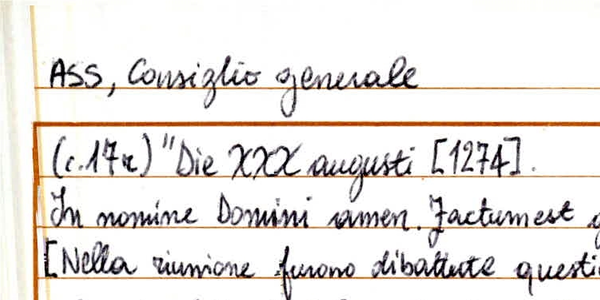 ASS, Consiglio generale
(c.17r) "Die XXX augusti [1274].
In nomine Domini amen. Factum est
[Nella riunione furono dibattute questi